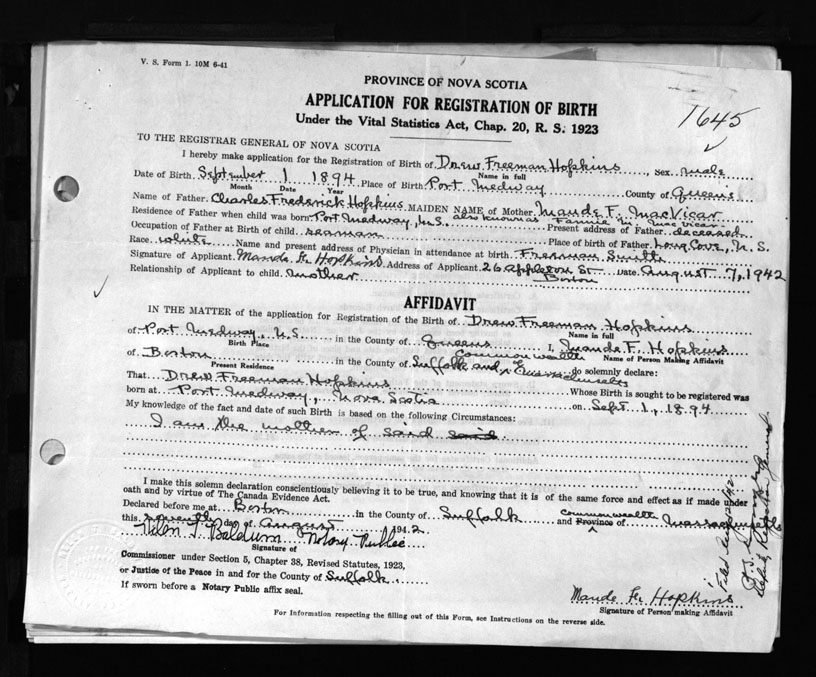 V. S. Form 1. 10M 6-41
PROVINCE OF NOVA SCOTIA
APPLICATION FOR REGISTRATION OF BIRTH
Under the Vital Statistics Act, Chap. 20, R. S. 1923
1645
TO THE REGISTRAR GENERAL OF NOVA SCOTIA
I hereby make application for the Registration of Birth of Drew Freeman Hopkins Sex male
Name in full
Date of Birth September 1 1894 Place of Birth Port Medway County of Queens
Month Date Year
Name of Father Charles Frederick Hopkins MAIDEN NAME of Mother Maude F. MacVicar
also known as Fannie M. MacVicar
Residence of Father when child was born Port Medway, N.S. Present address of Father deceased
Occupation of Father at Birth of child seaman Place of birth of Father Long Cove, N. S.
Race white Name and present address of Physician in attendance at birth Freeman Smith
Signature of Applicant Maude F. Hopkins Address of Applicant 26 Appleton St Date August 7, 1942
Boston
Relationship of Applicant to child mother
AFFIDAVIT
IN THE MATTER of the application for Registration of the Birth of Drew Freeman Hopkins
Name in full
of Port Medway, N.S. in the County of Queens I, Maude F. Hopkins
Birth Place Name of Person Making Affidavit
of Boston in the County of Suffolk and Commonwealth of Massachusetts do solemnly declare:
Present Residence
That Drew Freeman Hopkins Whose Birth is sought to be registered was
born at Port Medway, Nova Scotia on Sept 1, 1894
My knowledge of the fact and date of such Birth is based on the following Circumstances:
I am the mother of said said
I make this solemn declaration conscientiously believing it to be true, and knowing that it is of the same force and effect as if made under
oath and by virtue of The Canada Evidence Act.
Declared before me at Boston in the County of Suffolk and Commonwealth Province of Massachusetts
this seventh day of August 1942
Helen T. Baldwin Notary Public
Signature of
Commissioner under Section 5, Chapter 38, Revised Statutes, 1923,
or Justice of the Peace in and for the County of Suffolk
If sworn before a Notary Public affix seal.
Maude F. Hopkins
Signature of Person making Affidavit
For Information respecting the filling out of this Form, see Instructions on the reverse side.